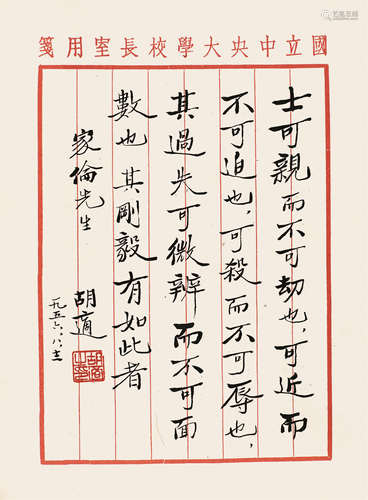 國立中央大學校長室用箋
士可親而不可劫也,可近而
不可迫也,可殺而不可辱也,
其過失可微辨而不可面
數也 其剛毅有如此者
家倫先生
胡適
一九五六.八.十二